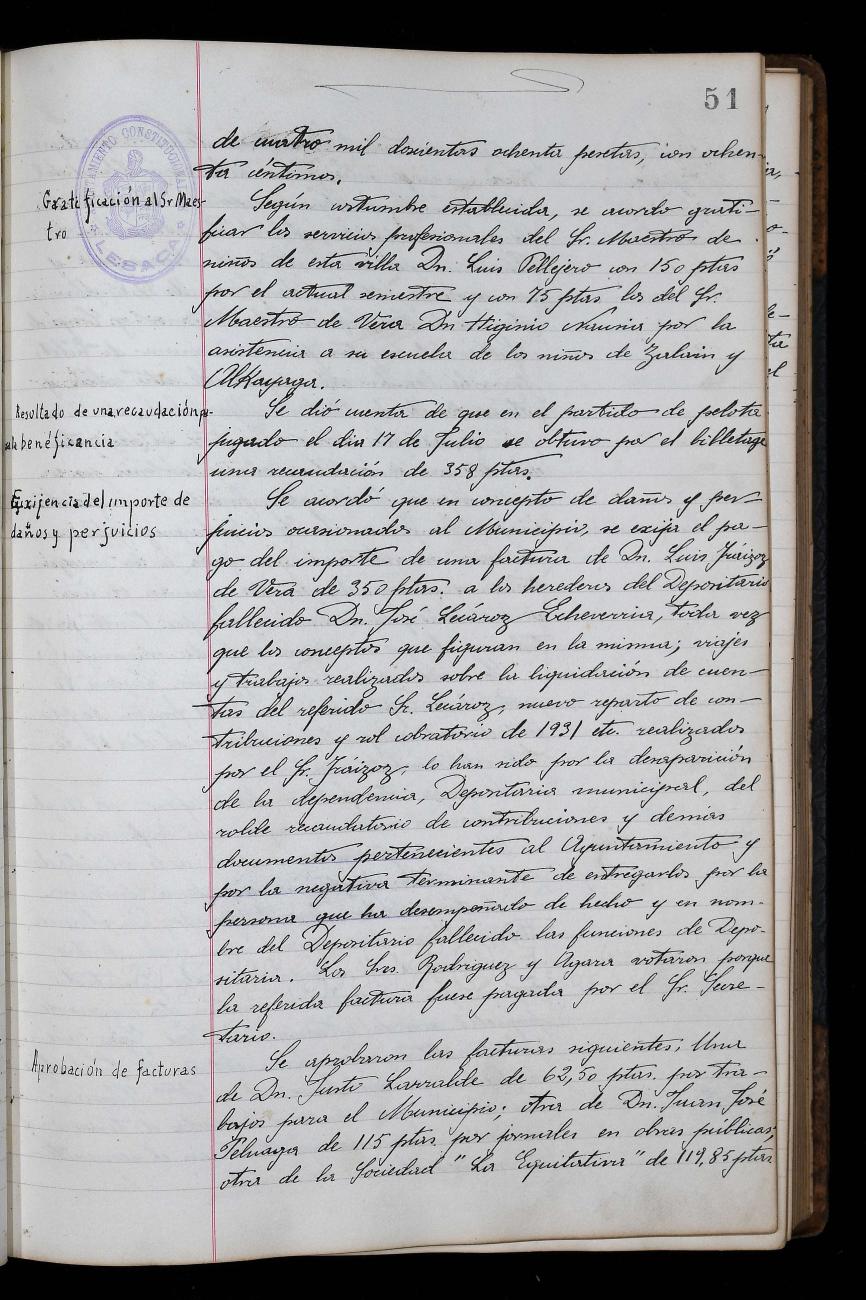 51
AYUNTAMIENTO CONSTITUCIONAL
LESACA
de cuatro mil doscientas ochenta pesetas, con ochen-
ta céntimos.
Gratificación al Sr Maes-
tro
Según costumbre establecida, se acordo grati-
ficar los servicios profesionales del Sr. Maestro de
niños de esta villa Dn. Luis Pellejero con 150 ptas
por el actual semestre y con 75 ptas los del Sr.
Maestro de Vera Dn Higinio por la
asistencia a su escuela de los niños de Zalain y
Alkayaga.
Resultado de una recaudación pa-
ra la benéficancia
Se dió cuenta de que en el partido de pelota
jugado el dia 17 de Julio se obtuvo por el billetage
una recaudación de 358 ptas.
Exijencia del importe de
daños y perjuicios
Se acordó que en concepto de daños y per-
juicios ocasionados al Municipio, se exija el pa-
go del importe de una factura de Dn. Luis Iráizoz
de Vera de 350 ptas. a los herederos del Depositario
fallecido Dn. José Lecároz Echeverria, toda vez
que los conceptos que figuran en la misma; viajes
y trabajos realizados sobre la liquidación de cuen-
tas del referido Sr. Lecároz, nuevo reparto de con-
tribuciones y rol cobratorio de 1931 etc. realizados
por el Sr. Iráizoz, lo han sido por la desaparición
de la dependencia, Depositaria municipal, del
rolde recaudatorio de contribuciones y demás
documentos pertenecientes al Ayuntamiento y
por la negativa terminante de entregarlos por la
persona que ha desempeñado de hecho y en nom-
bre del Depositario fallecido las funciones de Depo-
sitaria. Los Sres. Rodriguez y Agara votaron porque
la referida factura fuese pagada por el Sr. Secre-
tario.
Aprobación de facturas
Se aprobaron las facturas siguientes; Una
de Dn. Justo Larralde de 62,50 ptas. por tra-
bajos para el Municipio; otra de Dn. Juan José
Peluaga de 115 ptas por jornales en obras públicas;
otra de la Sociedad "La Equitativa" de 119,85 ptas